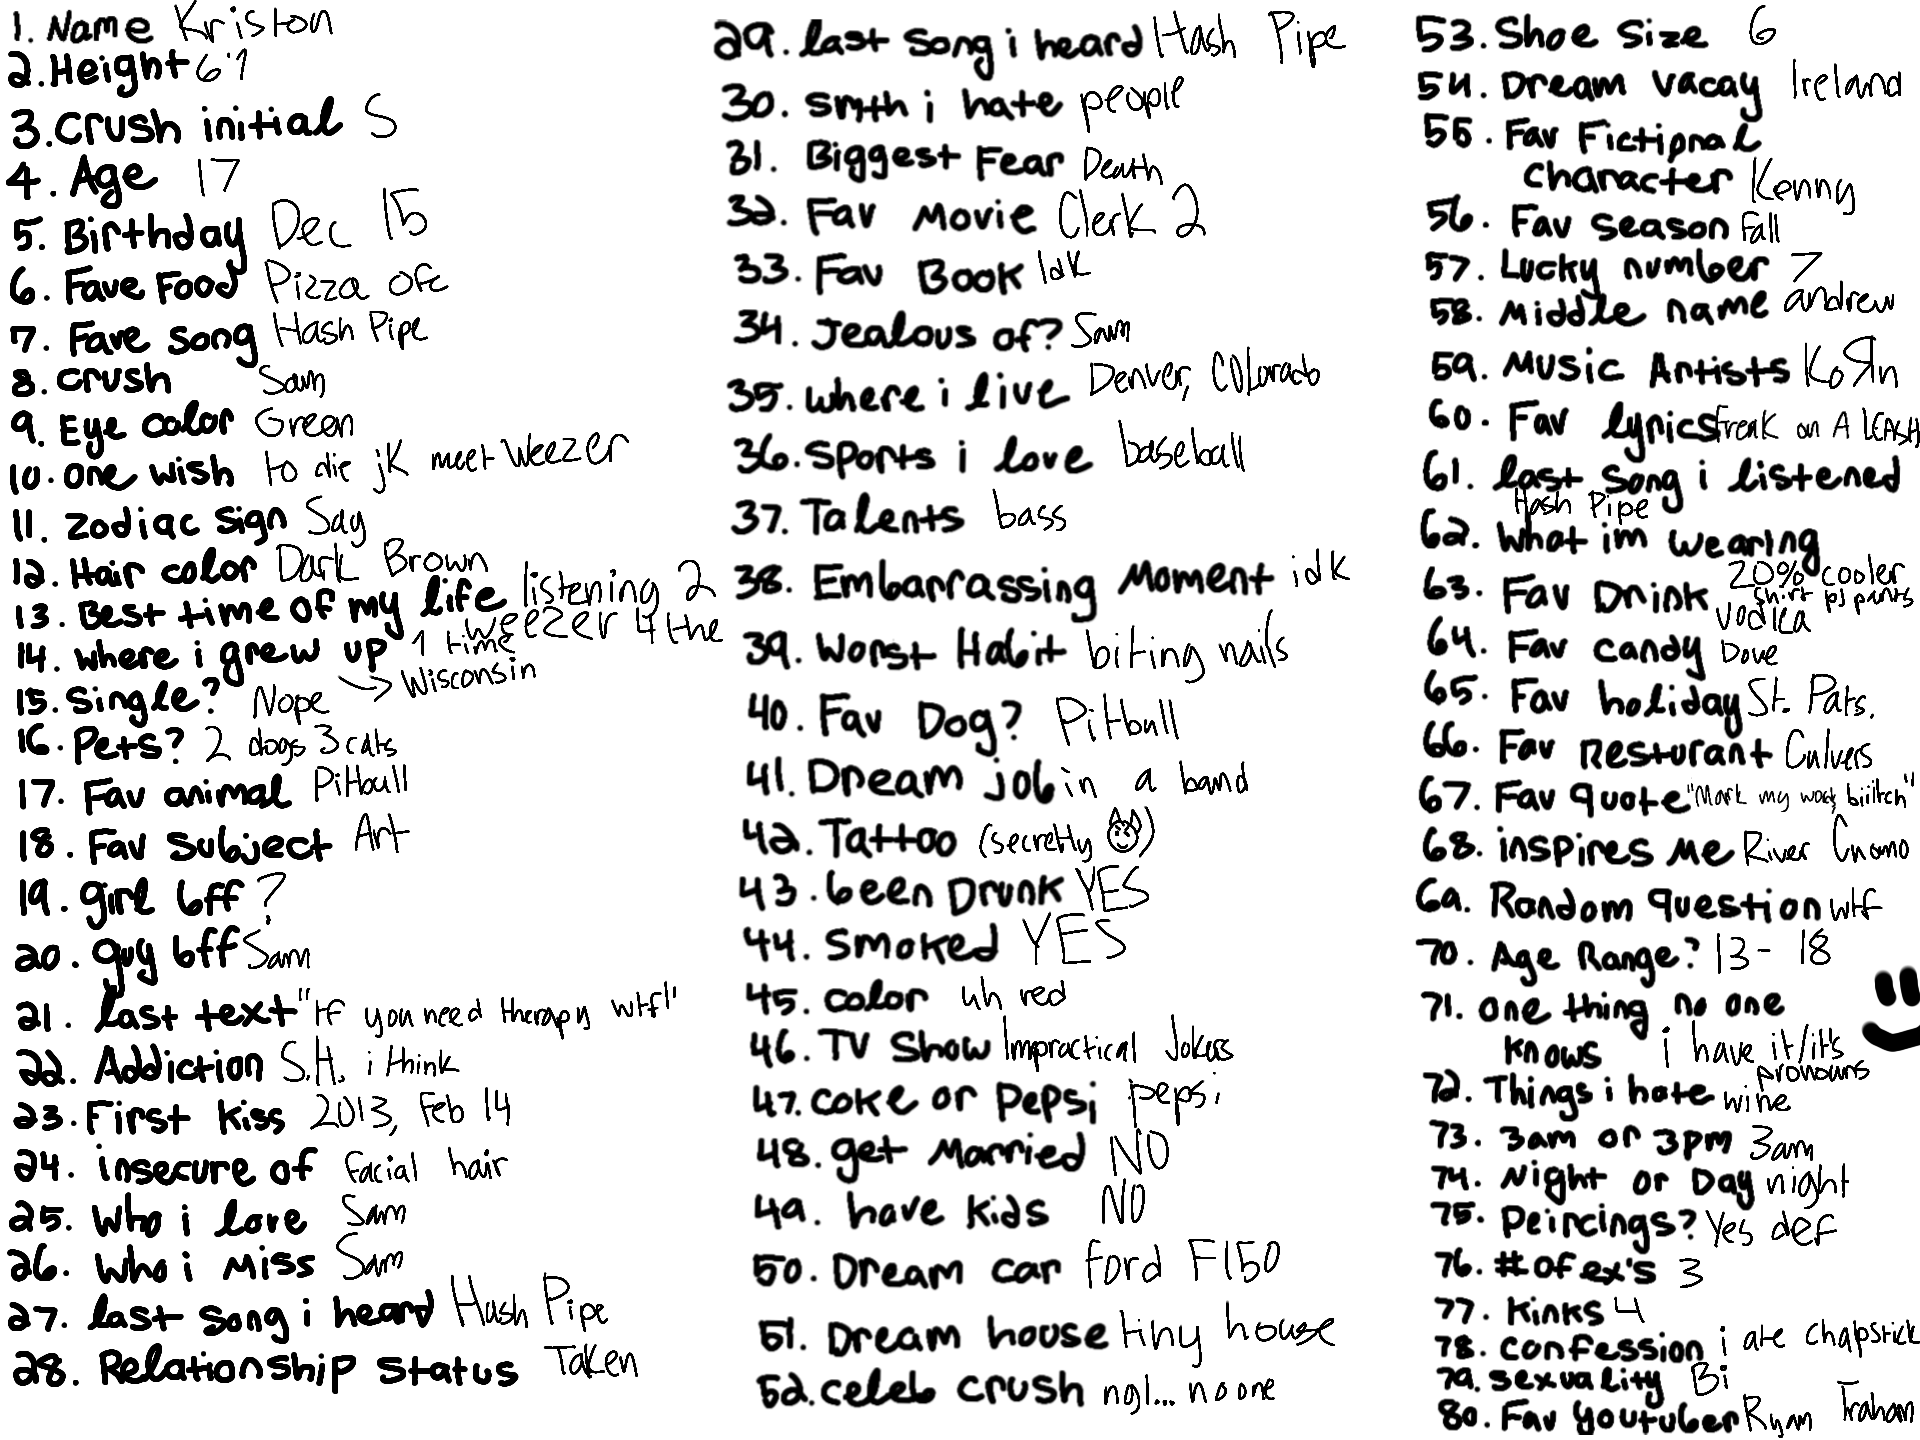 1. Name Kriston
2. Height 6'1
3. crush initial S
4. Age 17
5. Birthday Dec 15
6. Fave Food Pizza ofc
7. Fave song Hash Pipe
8. crush Sam
9. Eye color Green
10. one wish to die jk meet Weezer
11. zodiac sign Sag
12. Hair color Dark Brown
13. Best time of my life listening 2
weezer 4 the
1 time
14. where i grew up → Wisconsin
15. Single? Nope
16. Pets? 2 dogs 3 cats
17. Fav animal Pitbull
18. Fav subject Art
19. girl bff ?
20. guy bff Sam
21. last text "tf you need therapy wtf!"
22. Addiction S.H. i think
23. First kiss 2013, Feb 14
24. insecure of facial hair
25. Who i love Sam
26. Who i Miss Sam
27. last song i heard Hash Pipe
28. Relationship status Taken
29. last song i heard Hash Pipe
30. smth i hate people
31. Biggest Fear Death
32. Fav Movie Clerk 2
33. Fav Book Idk
34. Jealous of? Sam
35. where i live Denver, Colorado
36. Sports i love baseball
37. Talents bass
38. Embarrassing Moment idk
39. Worst Habit biting nails
40. Fav Dog? Pitbull
41. Dream job in a band
42. Tattoo (secretly )
43. been Drunk YES
44. smoked YES
45. color uh red
46. TV Show Impractical Jokers
47. coke or Pepsi pepsi
48. get Married NO
49. have kids NO
50. Dream car ford F150
51. Dream house tiny house
52. celeb crush ngl... no one
53. Shoe Size 6
54. Dream vacay Ireland
55. Fav Fictional
character Kenny
56. Fav season Fall
57. Lucky number 7
58. Middle name andrew
59. Music Artists KoЯn
60. Fav lyrics freak on A lEASH
61. last song i listened
Hash Pipe
62. What im wearing
20% cooler
shirt pj pants
63. Fav Drink vodka
64. Fav candy Dove
65. Fav holiday St. Pats.
66. Fav Resturant Culvers
67. Fav quote "Mark my words, biiitch"
68. inspires me River Cuomo
69. Random question wtf
70. Age Range? 13 - 18
71. one thing no one
knows i have it/it's
pronouns
72. Things i hate wine
73. 3am or 3pm 3am
74. Night or Day night
75. Peircings? Yes def
76. # of ex's 3
77. Kinks 4
78. confession i ate chapstick
79. sexuality Bi
80. Fav youtuber Ryan Trahan